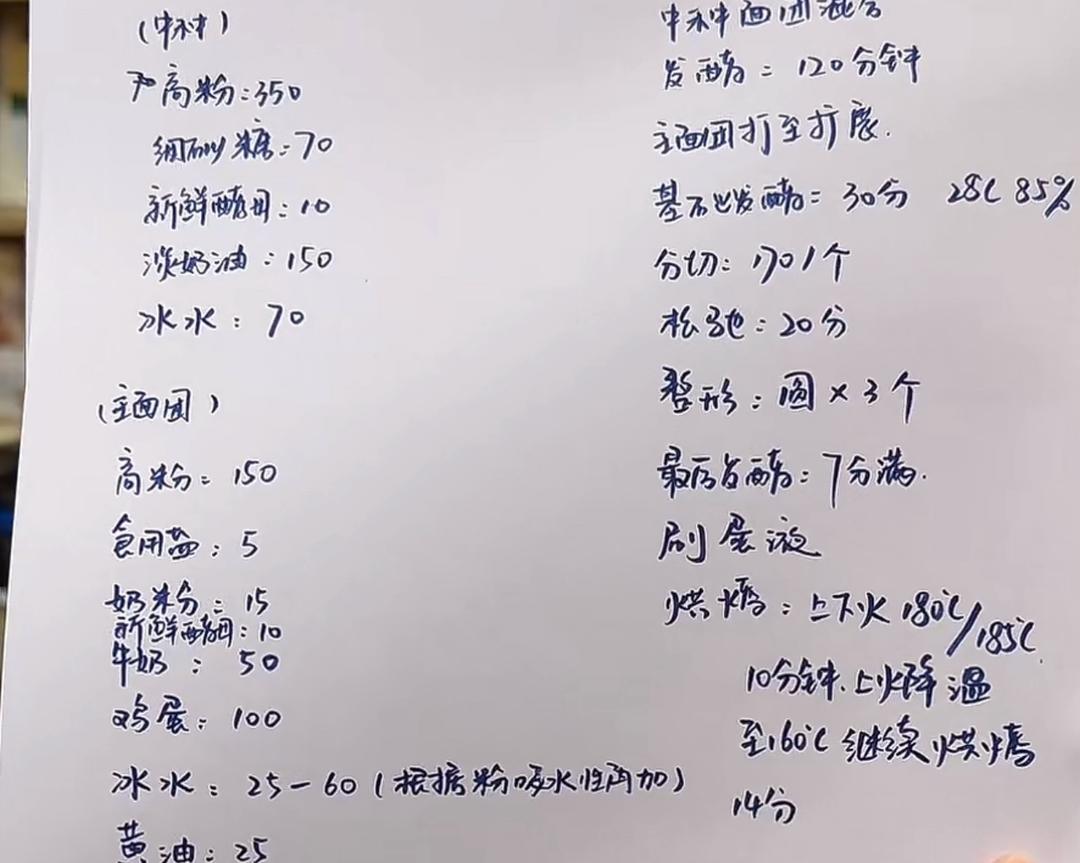 (中种)
高粉:350
细砂糖:70
新鲜酵母:10
淡奶油:150
冰水:70
(主面团)
高粉:150
食用盐:5
奶粉:15
新鲜酵母:10
牛奶:50
鸡蛋:100
冰水:25-60(根据粉吸水性再加)
黄油:25
中种面团混合
发酵:120分钟
主面团打至扩展.
基础发酵:30分 28C 85%
分切:170/个
松弛:20分
整形:圆×3个
最后发酵:7分满.
刷蛋液
烘烤:上下火180℃/185℃
10分钟.上火降温
至160℃继续烘烤
14分